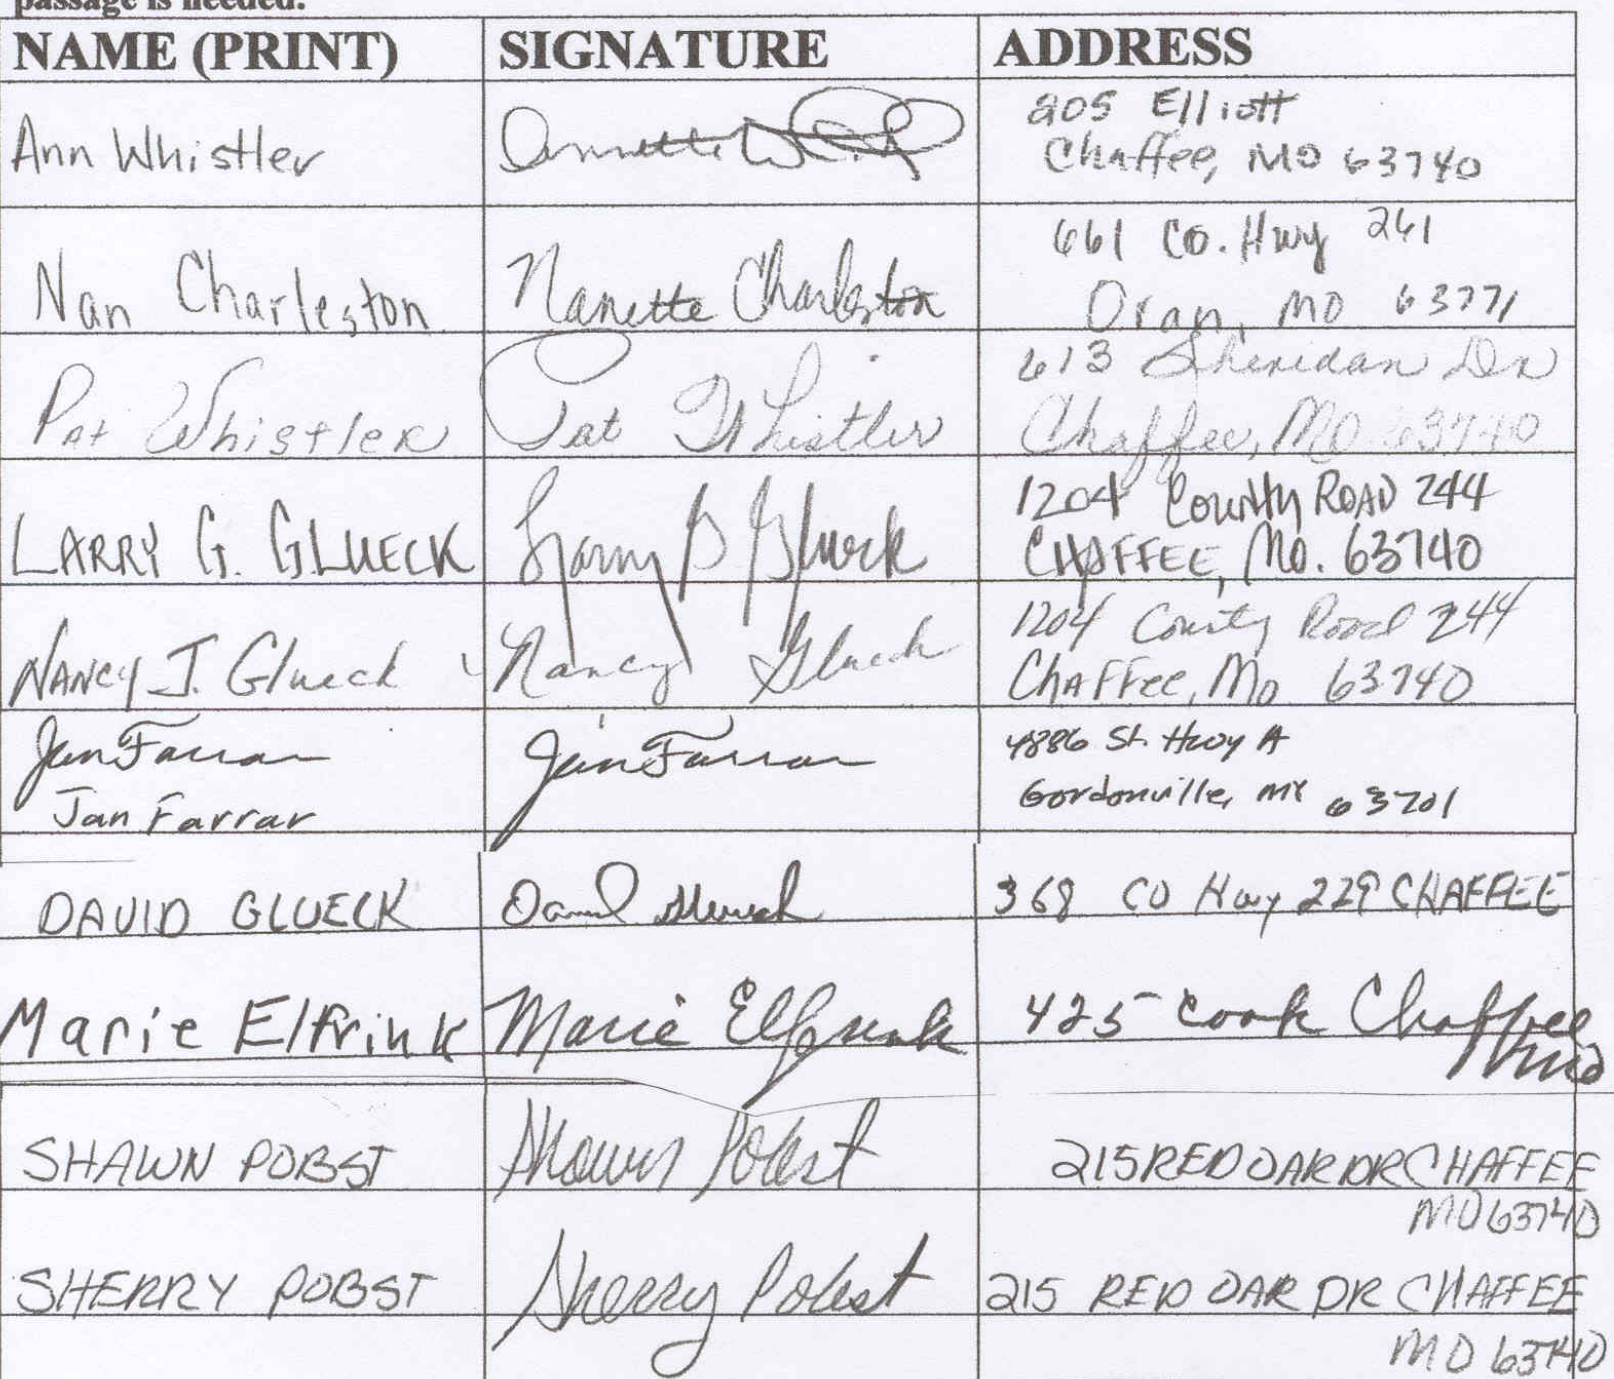 passage is needed.
NAME (PRINT) SIGNATURE ADDRESS
Ann Whistler Annette 205 Elliott
Chaffee, MO 63740
Nan Charleston Nanette Charleston 661 CO. Hwy 261
Oran, MO 63771
Pat Whistler Pat Whistler 613 Sheridan Dr
Chaffee, MO 63740
LARRY G. GLUECK Larry G Glueck 1204 County ROAD 244
CHAFFEE, MO. 63740
NANCY J. Glueck Nancy Glueck 1204 County Road 244
CHAFFee, Mo 63740
Jan Farrar Jan Farrar 4886 St. Hwy A
Jan Farrar Gordonville, 63701
DAVID GLUECK David Glueck 368 CO Hwy 229 CHAFFEE
Marie Elfrink Marie Elfrink 425 Cook Chaffee
Mo
SHAWN POBST Shawn Pobst 215 RED OAK DR CHAFFEE
MO 63740
SHERRY POBST Sherry Pobst 215 RED OAK DR CHAFFEE
MO 63740